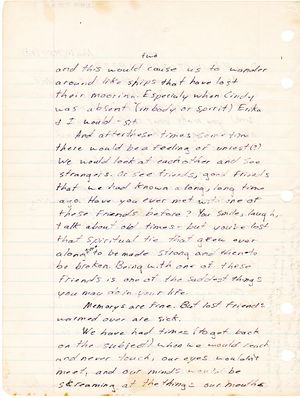 two
and this would cause us to wander
around like ships that have lost
their mooring. Especialy when Cindy
was absent (in body or spirit) Erika
& I would - sit
And after these times some time
there would be a feeling of unrest(?)
We would look at each other and see
strangers. Or see friends, good friends
that we had known a long, long time
ago. Have you ever met with one of
these friends before? You smile, laugh,
talk about old times - but you've lost
that spiritual tie that grew over
along to be made strong and then to
be broken. Being with one of these
friends is one of the saddest things
you may do in your life.
Memorys are fine. But lost friends
warmed over are sick.
We have had times (to get back
on the subject) when we would reach
and never touch, our eyes wouldn't
meet, and our minds would be
screaming at the things our mouths